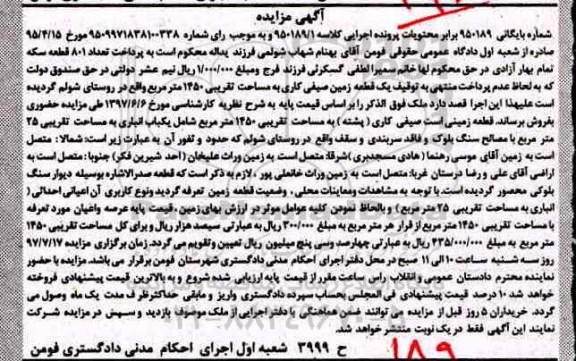 آگهی مزایده
شماره بایگانی ۹۵۰۱۸۹ برابر محتویات پرونده اجرایی کلاسه ۹۵۰۱۸۹/۱ و به موجب رای شماره ۹۵۰۹۹۷۱۸۳۸۱۰۰۳۳۸ مورخ ۹۵/۴/۱۵
صادره از شعبه اول دادگاه عمومی حقوقی فومن آقای بهنام شهاب شولمی فرزند یداله محکوم است به پرداخت تعداد ۸۰۱ قطعه سکه
تمام بهار آزادی در حق محکوم لها خانم سمیرا لطفی گسکرئی فرزند فرج و مبلغ ۱/۰۰۰/۰۰۰ ریال نیم عشر دولتی در حق صندوق دولت
که به لحاظ عدم پرداخت منتهی به توقیف یک قطعه زمین صیفی کاری به مساحت تقریبی ۱۴۵۰ متر مربع واقع در روستای شولم گردیده
است علیهذا این اجرا قصد دارد ملک فوق الذکر را بر اساس قیمت پایه به شرح نظریه کارشناسی مورخ ۱۳۹۷/۶/۶ طی مزایده حضوری
بفروش برساند. قطعه زمینی است صیفی کاری (پشته) به مساحت تقریبی ۱۴۵۰ متر مربع شامل یکباب انباری به مساحت تقریبی ۲۵
متر مربع با مصالح سنگ بلوک و فاقد سربندی و سقف واقع در روستای شولم که حدود و ثغور آن به عبارت زیر است: شمالا: متصل
است به زمین آقای موسی رهنما (هادی مسجدبری) شرقا: متصل است به زمین وراث علیخان (احد شیرین فکر) جنوبا: متصل است به
اراضی آقای علی و رضا درستان غربا: متصل است به زمین وراث خانعلی پور، لازم به ذکر است که قطعه صدرالاشاره بوسیله دیوار سنگ
بلوکی محصور گردیده است. با توجه به مشاهدات و معاینات محلی، وضعیت قطعه زمین تعرفه گردید و نوع کاربری آن اعیانی احداثی (
انباری به مساحت تقریبی ۲۵ متر مربع) و بالحاظ نمودن کلیه عوامل موثر در ارزش بهای زمین، قیمت پایه عرصه و اعیان مورد تعرفه
با مساحت تقریبی ۱۴۵۰ متر مربع از قرار هر متر مربع به مبلغ ۳۰۰/۰۰۰ ریال به عبارتی سیصد هزار ریال و برای کل مساحت تقریبی ۱۴۵۰
متر مربع به مبلغ ۴۳۵/۰۰۰/۰۰۰ ریال به عبارتی چهارصد و سی پنج میلیون ریال تعیین و تقویم می گردد. زمان برگزاری مزایده ۹۷/۷/۱۷
روز سه شنبه ساعت ۱۰ الی ۱۱ صبح در محل دفتر اجرای احکام مدنی دادگستری شهرستان فومن برقرار می باشد. مزایده با حضور
نماینده محترم دادستان عمومی و انقلاب راس ساعت مقرر از قیمت پایه ارزیابی شده شروع و به بالاترین قیمت پیشنهادی فروخته
خواهد شد ۱۰ درصد قیمت پیشنهادی فی المجلس بحساب سپرده دادگستری واریز و مابقی حداکثر ظرف مدت یک ماه وصول می
گردد. خریداران ۵ روز قبل از مزایده می توانند ضمن هماهنگی با دفتر اجرایی از ملک موصوف بازدید و سپس در مزایده شرکت
نمایند این آگهی فقط در یک نوبت منتشر خواهد شد.
ح ۳۹۹۹ شعبه اول اجرای احکام مدنی دادگستری فومن
۱۸۹